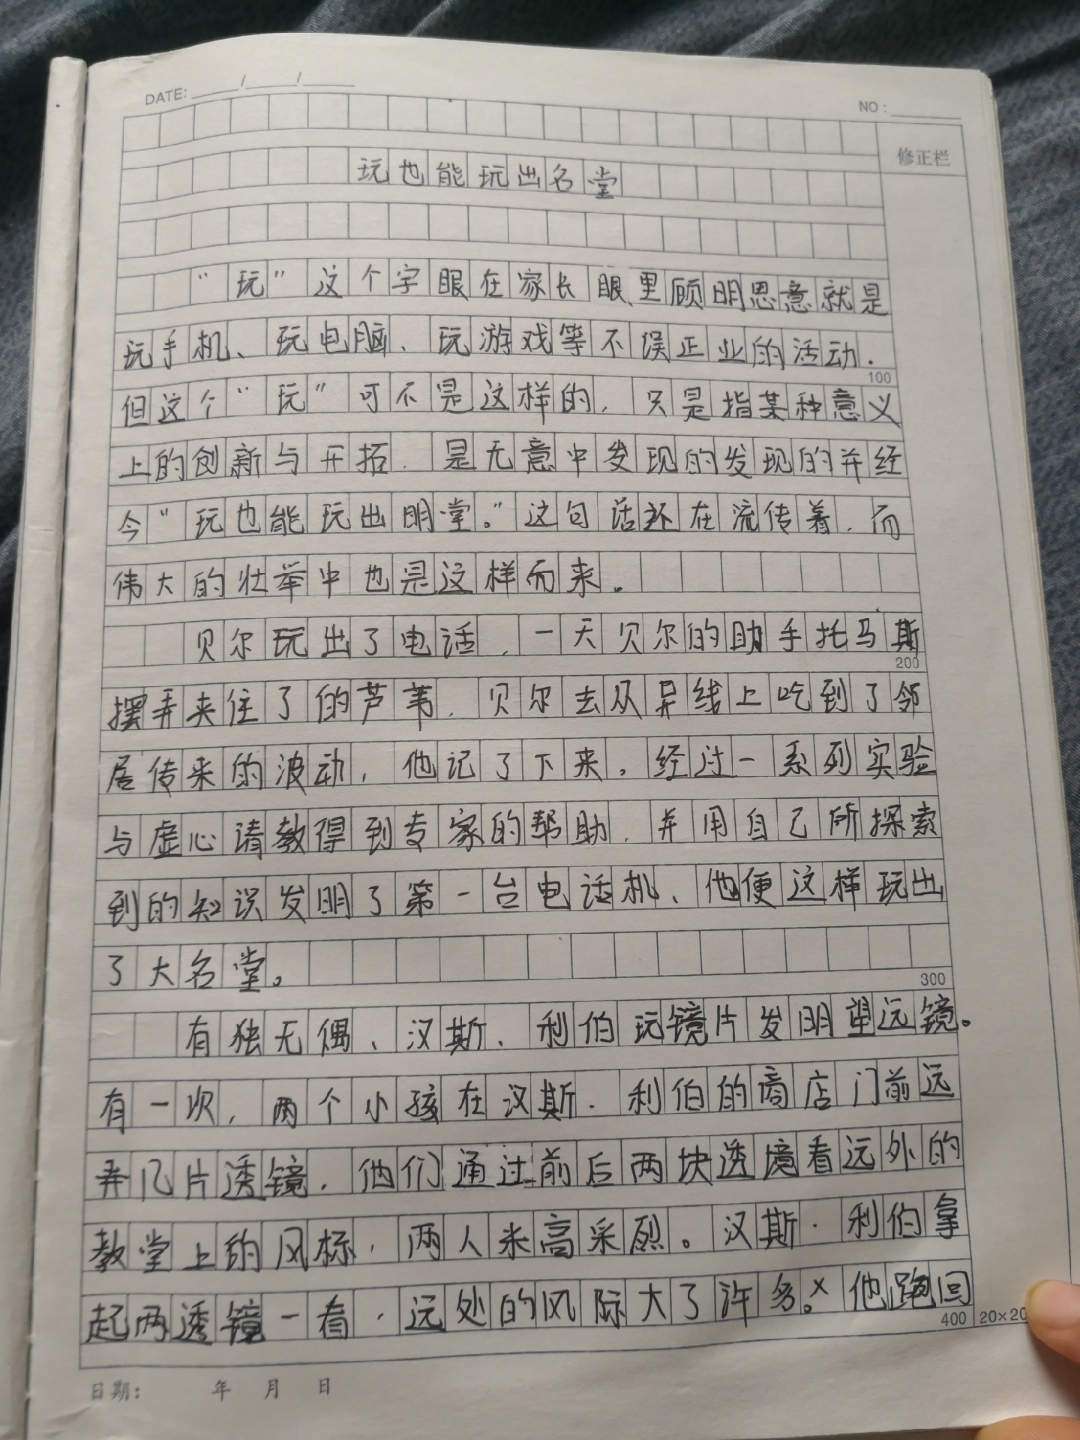 DATE: ____/____/____
NO：
修正栏
玩也能玩出名堂
“玩”这个字眼在家长眼里顾明思意就是
玩手机、玩电脑、玩游戏等不误正业的活动.
100
但这个“玩”可不是这样的，只是指某种意义
上的创新与开拓.是无意中发现的发现的并经
今“玩也能玩出明堂。”这句话还在流传着，而
伟大的壮举中也是这样而来。
贝尔玩出了电话，一天贝尔的助手托马斯
200
摆弄夹住了的芦苇，贝尔去从异线上吃到了邻
居传来的波动，他记了下来。经过一系列实验
与虚心请教得到专家的帮助，并用自己所探索
到的知识发明了第一台电话机、他便这样玩出
了大名堂。
300
有独无偶、汉斯、利伯玩镜片发明望远镜。
有一次，两个小孩在汉斯.利伯的商店门前远
弄几片透镜，他们通过前后两块透境看远外的
教堂上的风标，两人米高采烈。汉斯·利伯拿
起两透镜一看，远处的风际大了许多。他跑回
400
20×20
日期： 年 月 日